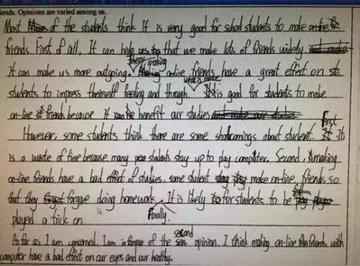 ends. Opinions are varied among us.
Most of the students think It is very good for school students to make on-line
friends. First of all, It can help us that we make lots of friends widely.
It can make us more outgoing. making on-line friends have a great effect on
students to impress themself feeling and though. It is good for students to make
on-line friends because It can benefit our studies
However, some students think there are some shortcomings about student. First It
is a waste of time because many students stay up to play computer. Second, making
on-line friends have a bad effect of studies. some student make on-line friends so
that they forgive doing homework. It is likely for students to be
played a trick on. Finally,
As far as I am concerned, I am in favour of the second opinion. I think making on-line friends with
computer have a bad effect on our eyes and our healthy.